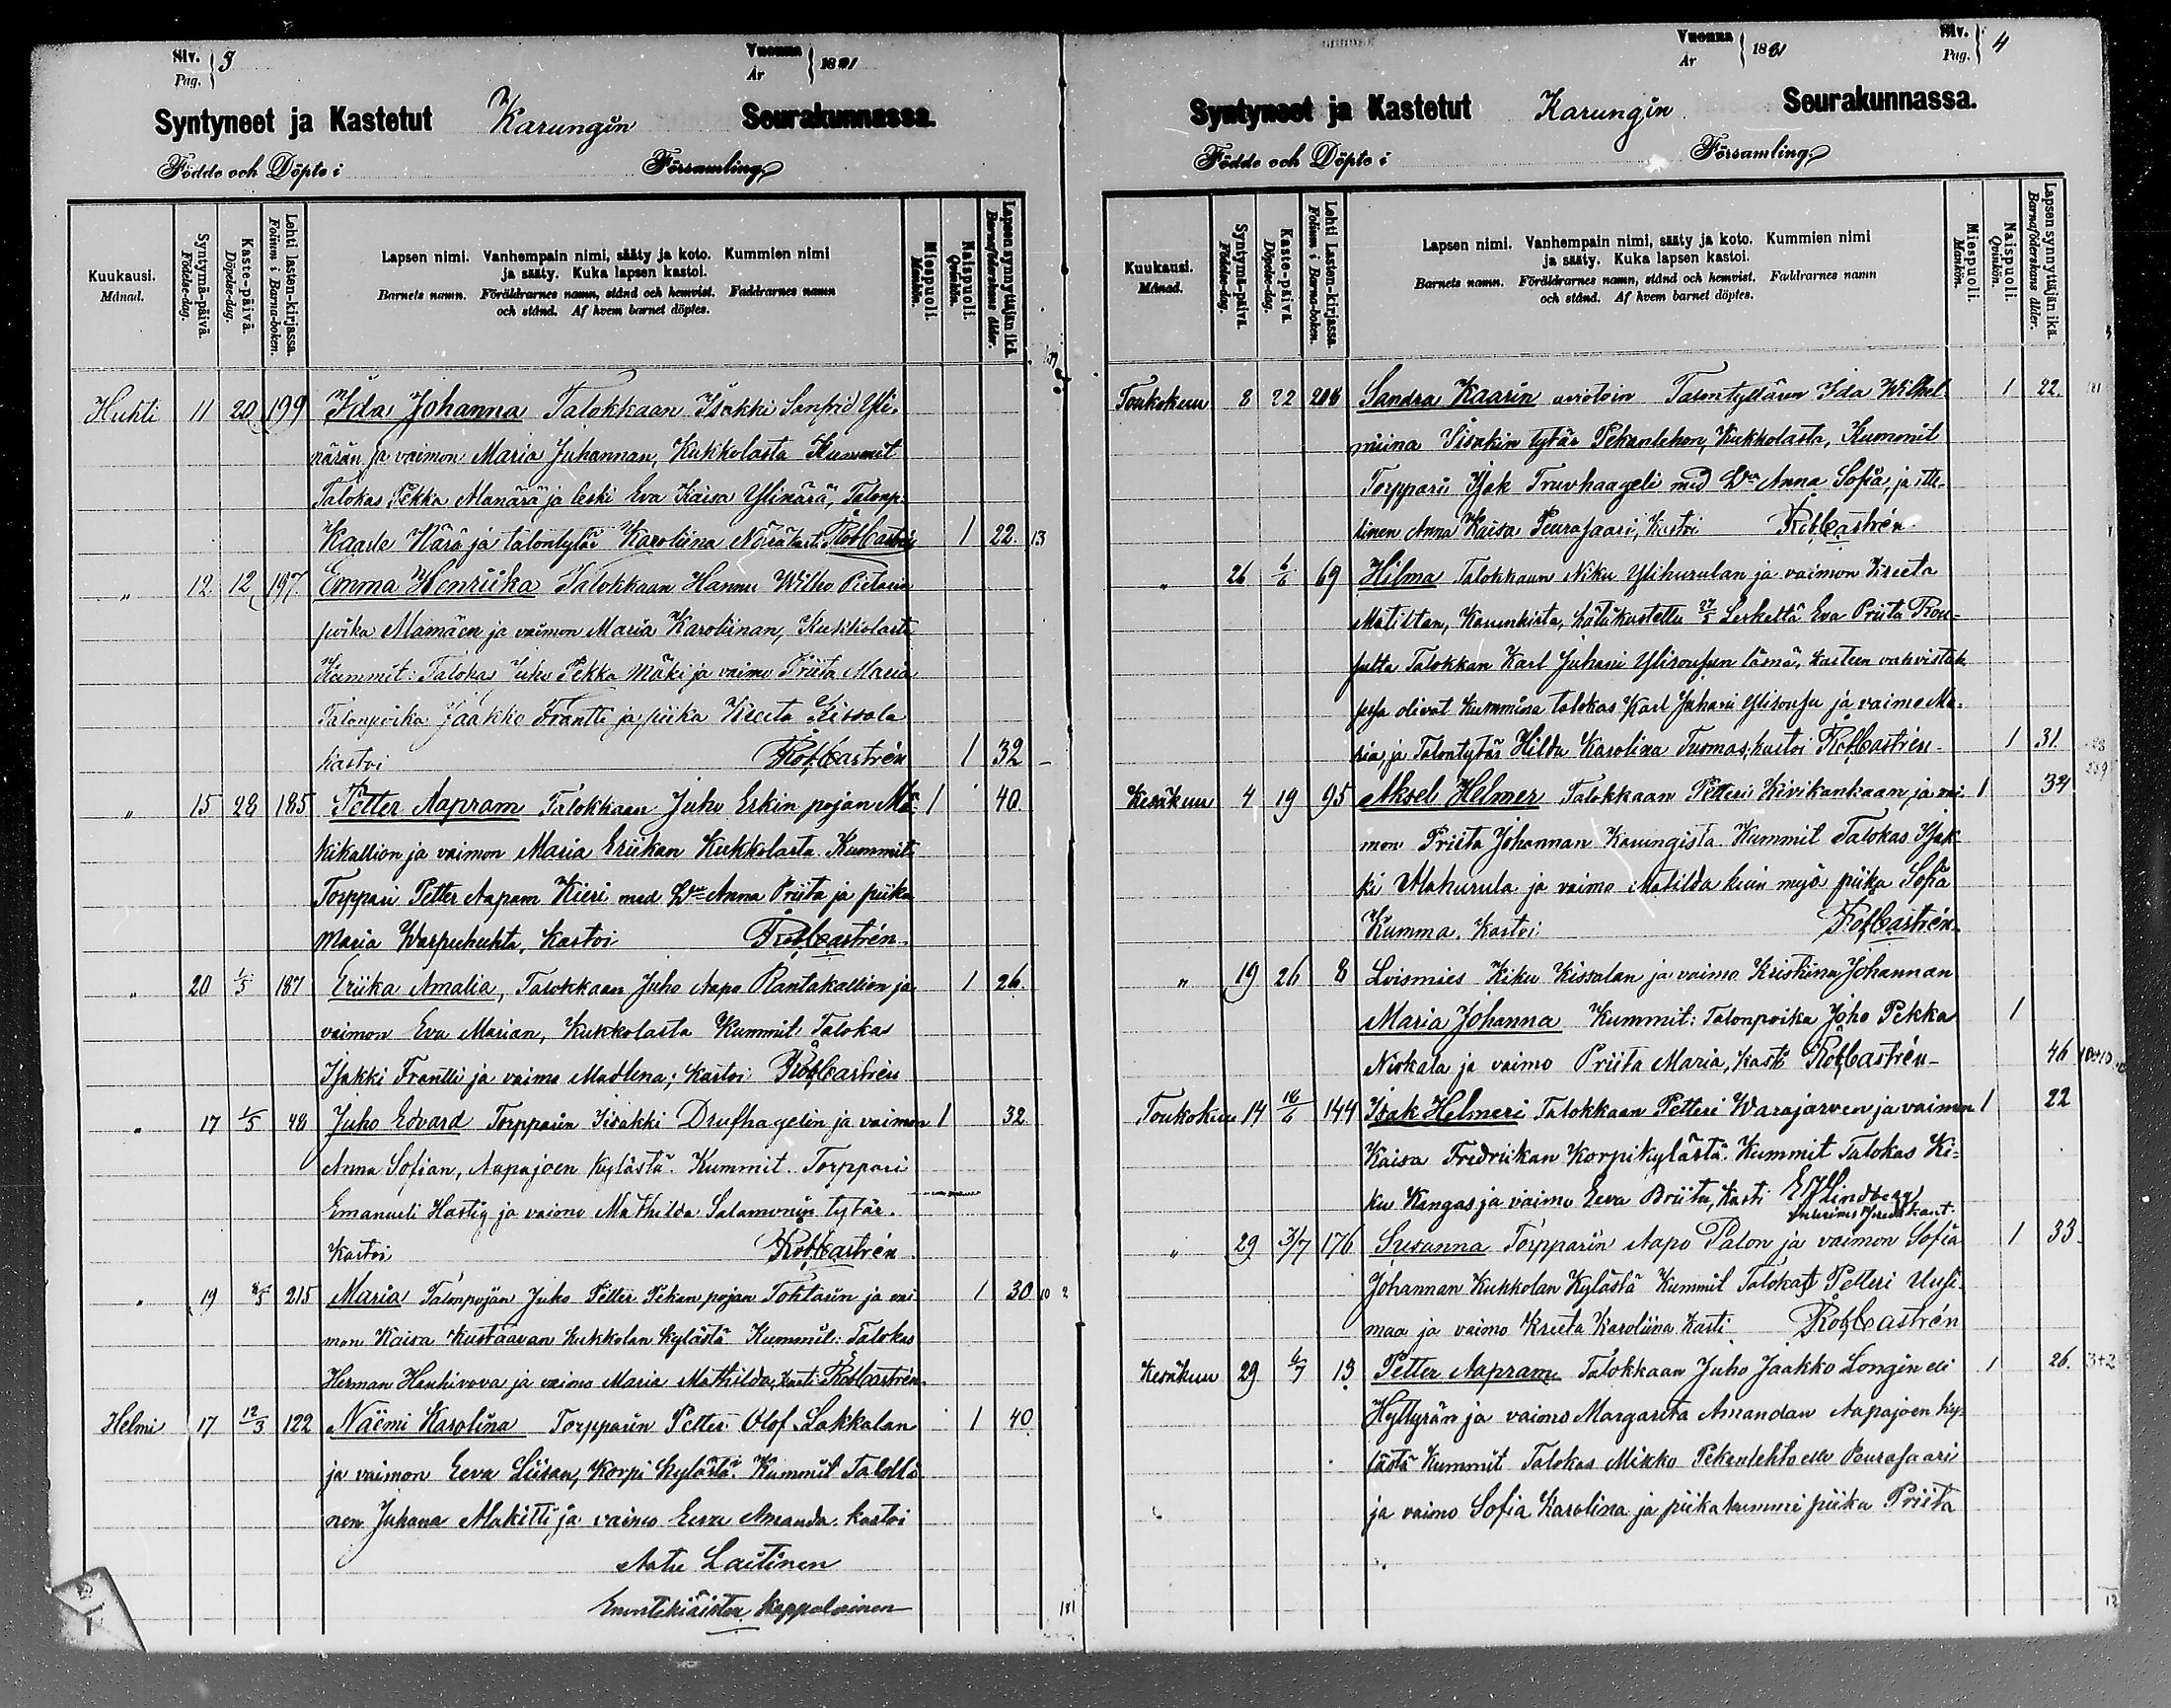 Siv. 3
Pag.
Vuonna 1881
År
Syntyneet ja Kastetut Karungin Seurakunnassa.
Födde och Döpte i Församling
Kuukausi.
Månad.
Syntymä-päivä.
Födelse-dag.
Kaste-päivä.
Döpelse-dag.
Lehti lasten-kirjassa.
Folium i Barna-boken.
Lapsen nimi. Vanhempain nimi, sääty ja koto. Kummien nimi
ja sääty. Kuka lapsen kastoi.
Barnets namn. Föräldrarnes namn, stånd och hemvist. Faddrarnes namn
och stånd. Af hvem barnet döptes.
Miespuoli.
Mankön.
Naispuoli.
Qvinkön.
Lapsen synnyttäjän ikä.
Barnaföderskans ålder.
Huhti 11 20 199 Ida Johanna Talokkaan Isakki Sanfrid Yli-
närän ja vaimon Maria Juhannan, Kukkolasta Kummit
Talokas Pekka Alanärä ja leski Eva Kaisa Ylinärä, Talonp.
Kaarle Närä ja talontytär Karoliina Närä Kasti RobCastrén 1 22 13
" 12 12 197 Emma Henriika Talokkaan Hannu Wilho Pietarin
poika Alamäen ja vaimon Maria Karolinan, Kukkolasta
Kummit: Talokas Juho Pekka Mäki ja vaimo Priita Maria
Talonpoika Jaakko Frantti ja piika Kreeta Kissala
kastoi RobCastrén 1 32
" 15 28 185 Petter Aapram Talokkaan Juho Erkin pojan Mä- 1 40
kikallion ja vaimon Maria Eriikan Kukkolasta Kummit
Torppari Petter Aapam Kieri med Hu Anna Priita ja piika
Maria Warpuhuhta, kastoi RobCastrén
" 20 1/5 187 Eriika Amalia, Talokkaan Juho Aapo Rantakallion ja 1 26
vaimon Eva Marian, Kukkolasta Kummit Talokas
Isakki Frantti ja vaimo Madlena; kastoi RobCastrén
" 17 1/5 48 Juho Edvard Torpparin Iisakki Drufhagelin ja vaimon 1 32
Anna Sofian, Aapajoen kylästä. Kummit. Torppari
Emanueli Hastig ja vaimo Mathilda Salamonin tytär.
kastoi RobCastrén
" 19 8/5 215 Maria Talonpojan Juho Petter Pekan pojan Tohtarin ja vai 1 30 10 2
mon Kaisa Kustaavan Kukkolan kylästä Kummit: Talokas
Herman Hanhivova ja vaimo Maria Mathilda, kasti RobCastrén
Helmi 17 12/3 122 Naëmi Karolina Torpparin Petteri Olof Lakkalan 1 40
ja vaimon Eeva Liisan, Korpi kylästä. Kummit Talolli-
nen Juhana Mäkitti ja vaimo Eeva Amanda. kastoi
Aatu Laitinen
Enontekiäisten kappalainen
181
Vuonna 1881
År
Siv. 4
Pag.
Syntyneet ja Kastetut Karungin Seurakunnassa.
Födde och Döpte i Församling
Kuukausi.
Månad.
Syntymä-päivä.
Födelse-dag.
Kaste-päivä.
Döpelse-dag.
Lehti Lasten-kirjassa.
Folium i Barna-boken.
Lapsen nimi. Vanhempain nimi, sääty ja koto. Kummien nimi
ja sääty. Kuka lapsen kastoi.
Barnets namn. Föräldrarnes namn, stånd och hemvist. Faddrarnes namn
och stånd. Af hvem barnet döptes.
Miespuoli.
Mankön.
Naispuoli.
Qvinkön.
Lapsen synnyttäjän ikä.
Barnaföderskans ålder.
Toukokuu 8 22 208 Sandra Kaarin aviotoin Talontyttären Ida Wilhel- 1 22
miina Iisakin tytär Pekanlehon, Kukkolasta, Kummit
Torppari Isak Truvhaageli med Hu Anna Sofia, ja itte-
linen Anna Kaisa Peurasaari, Kastoi RobCastrén
" 26 6/6 69 Hilma Talokkaan Niku Ylikurulan ja vaimon Kreeta
Matildan, Karunkista, hätäkastettu 27/5 Leskeltä Eva Priita Rou-
sulta Talokkan Karl Juhani Ylirousun läsnä, kasteen vahvistuk-
sessa olivat kummina talokas Karl Juhani Ylirousu ja vaimo Ma-
ria ja Talontytär Hilda Karolina Tuomas, kastoi RobCastrén 1 31
Kesäkuu 4 19 95 Aksel Helmer Talokkaan Petteri Kivikankaan ja vai- 1 34
mon Priita Johannan Karungista Kummit Talokas Isak-
ki Alakurula ja vaimo Matilda kuin myös piika Sofia
Kumma. Kastoi RobCastrén
" 19 26 8 Loismies Kiku Kissalan ja vaimo Kristiina Johannan
Maria Johanna Kummit: Talonpoika Joho Pekka 1
Niskala ja vaimo Priita Maria, kasti RobCastrén 46 10+10
Toukokuu 14 18/6 144 Isak Helmeri Talokkaan Petteri Warajärven ja vaimon 1 22
Kaisa Fredrikan Korpikylästä. Kummit Talokas Ki-
ku Kangas ja vaimo Eeva Briita, kasti E J Lindberg
" 29 3/7 176 Susanna Torpparin Aapo Palon ja vaimon Sofia 1 33
Johannan Kukkolan Kylästä Kummit Talokas Petteri Uusi-
maa ja vaimo Kreeta Karoliina Kasti RobCastrén
Kesäkuu 29 6/7 13 Petter Aapram Talokkaan Juho Jaakko Longin eli 1 26 3+2
Hyttyrän ja vaimo Margareta Amandan Aapajoen ky-
lästä Kummit Talokas Mikko Pekanlehto elle Peurasaari
ja vaimo Sofia Karolina ja piika kummi piika Priita